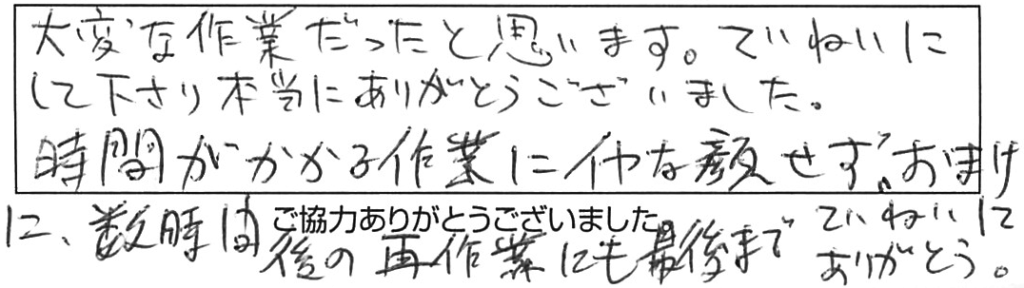 大変な作業だったと思います。ていねいに
して下さり本当にありがとうございました。
時間がかかる作業にイヤな顔せず、おまけ
に、数時間後の再作業にも最後まで ていねいに
ありがとう。
ご協力ありがとうございました。